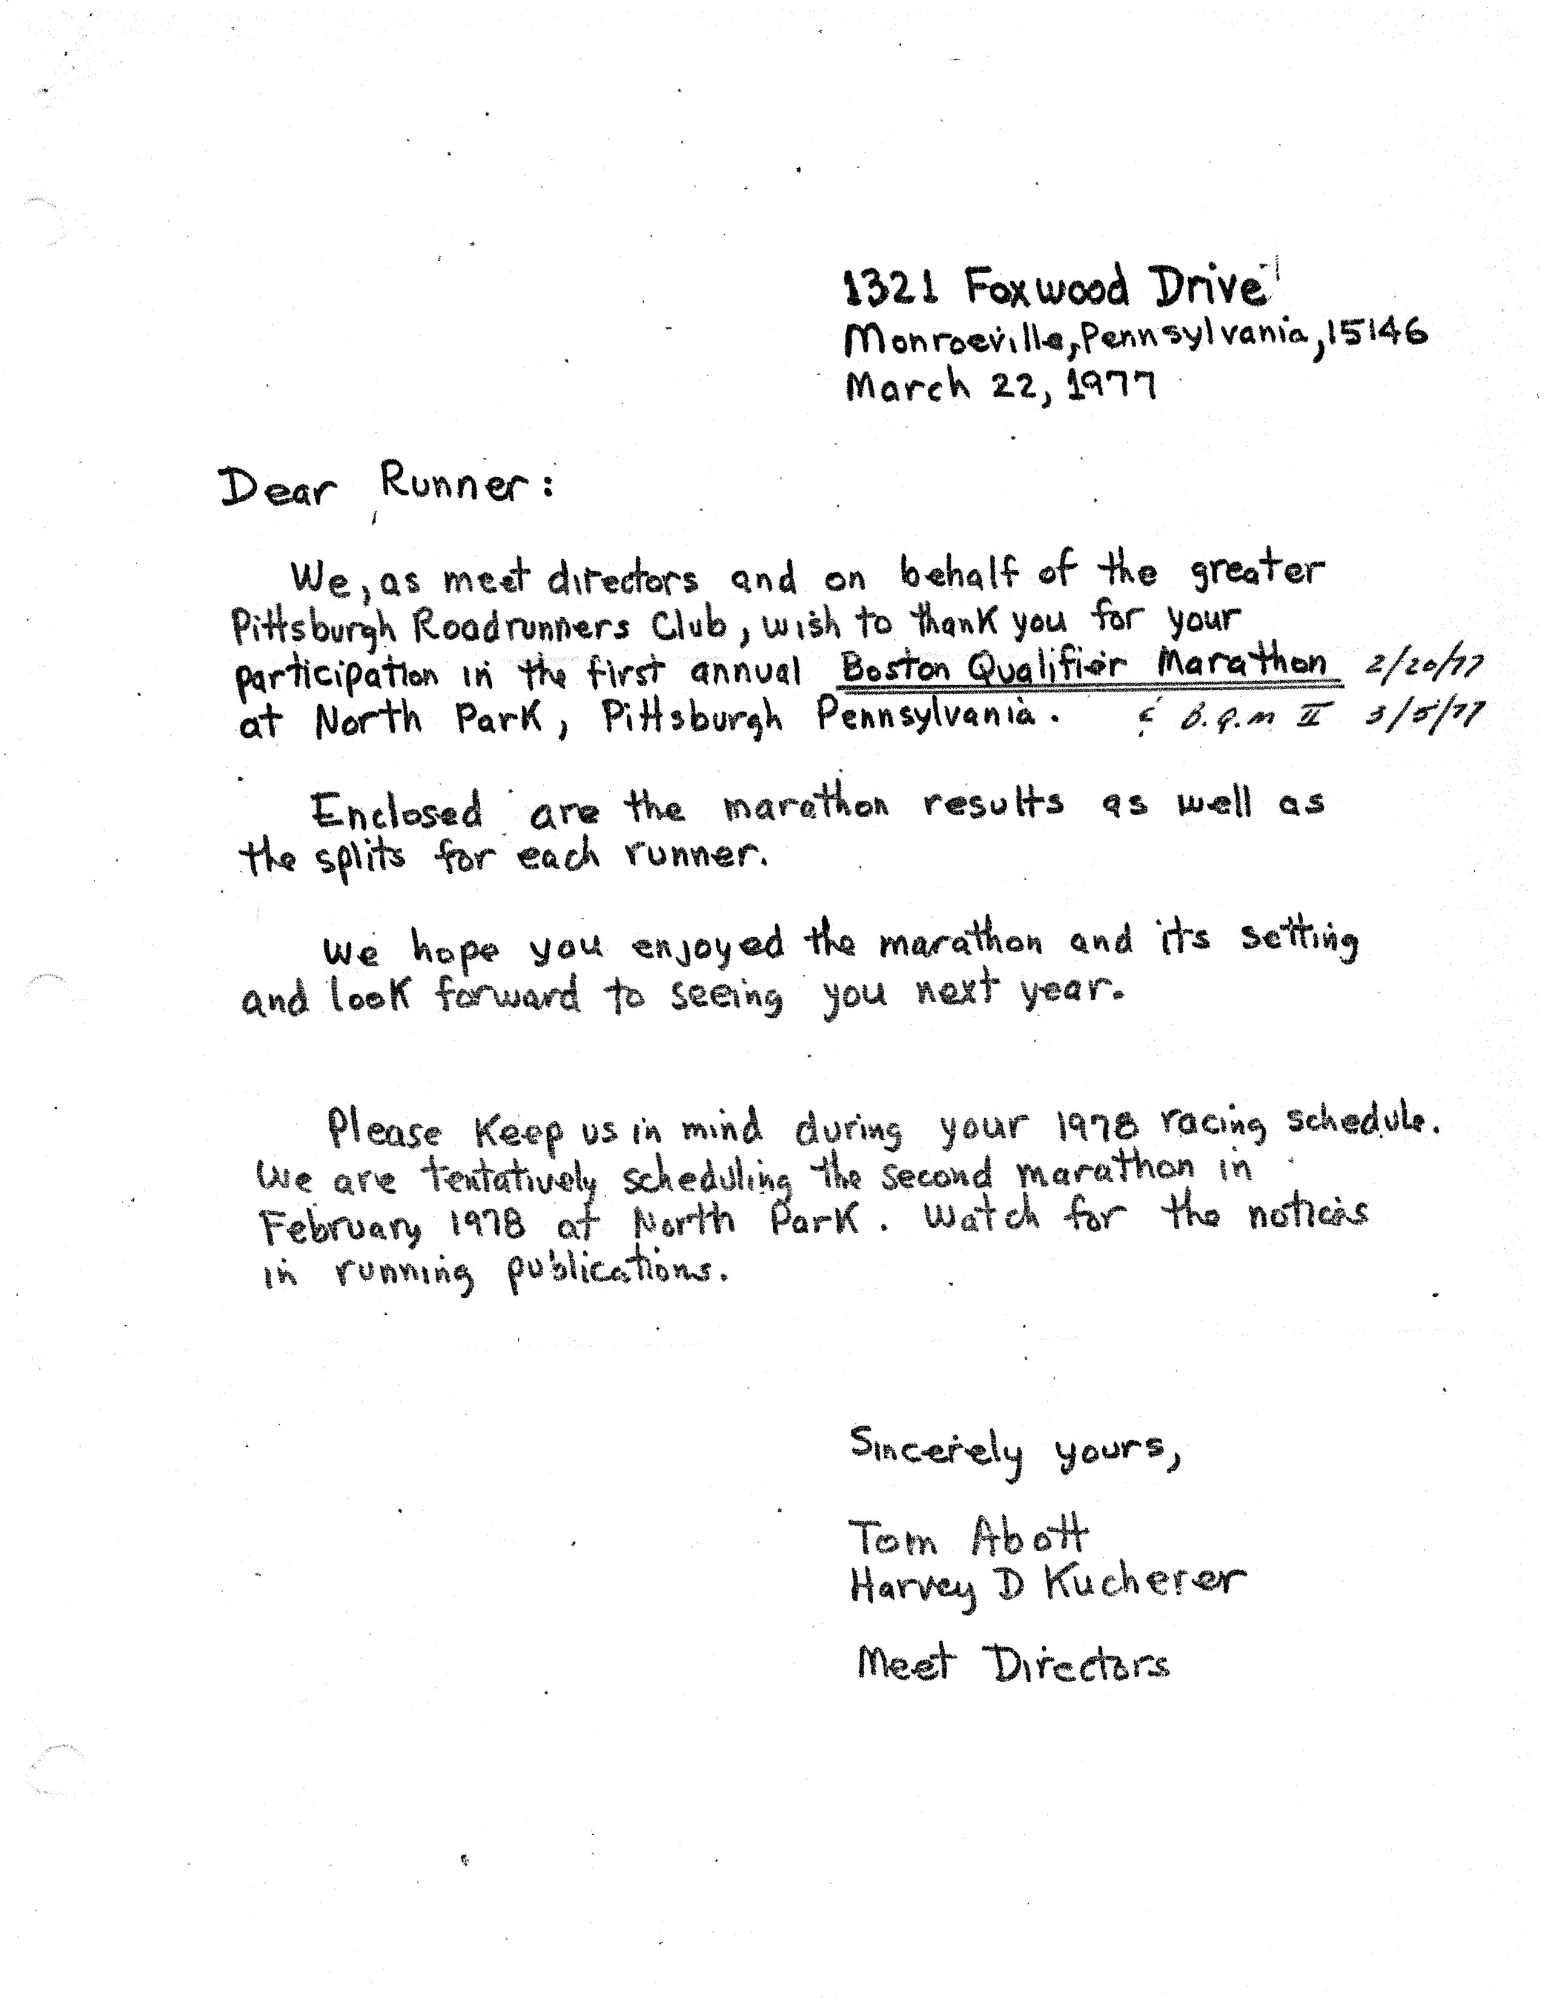 1321 Foxwood Drive
Monroeville, Pennsylvania, 15146
March 22, 1977
Dear Runner:
We, as meet directors and on behalf of the greater
Pittsburgh Roadrunners Club, wish to thank you for your
participation in the first annual Boston Qualifier Marathon 2/20/77
at North Park, Pittsburgh Pennsylvania. & B.Q.M II 3/5/77
Enclosed are the marathon results as well as
the splits for each runner.
We hope you enjoyed the marathon and its setting
and look forward to seeing you next year.
Please Keep us in mind during your 1978 racing schedule.
We are tentatively scheduling the second marathon in
February 1978 at North Park. Watch for the notices
in running publications.
Sincerely yours,
Tom Abott
Harvey D Kucherer
Meet Directors